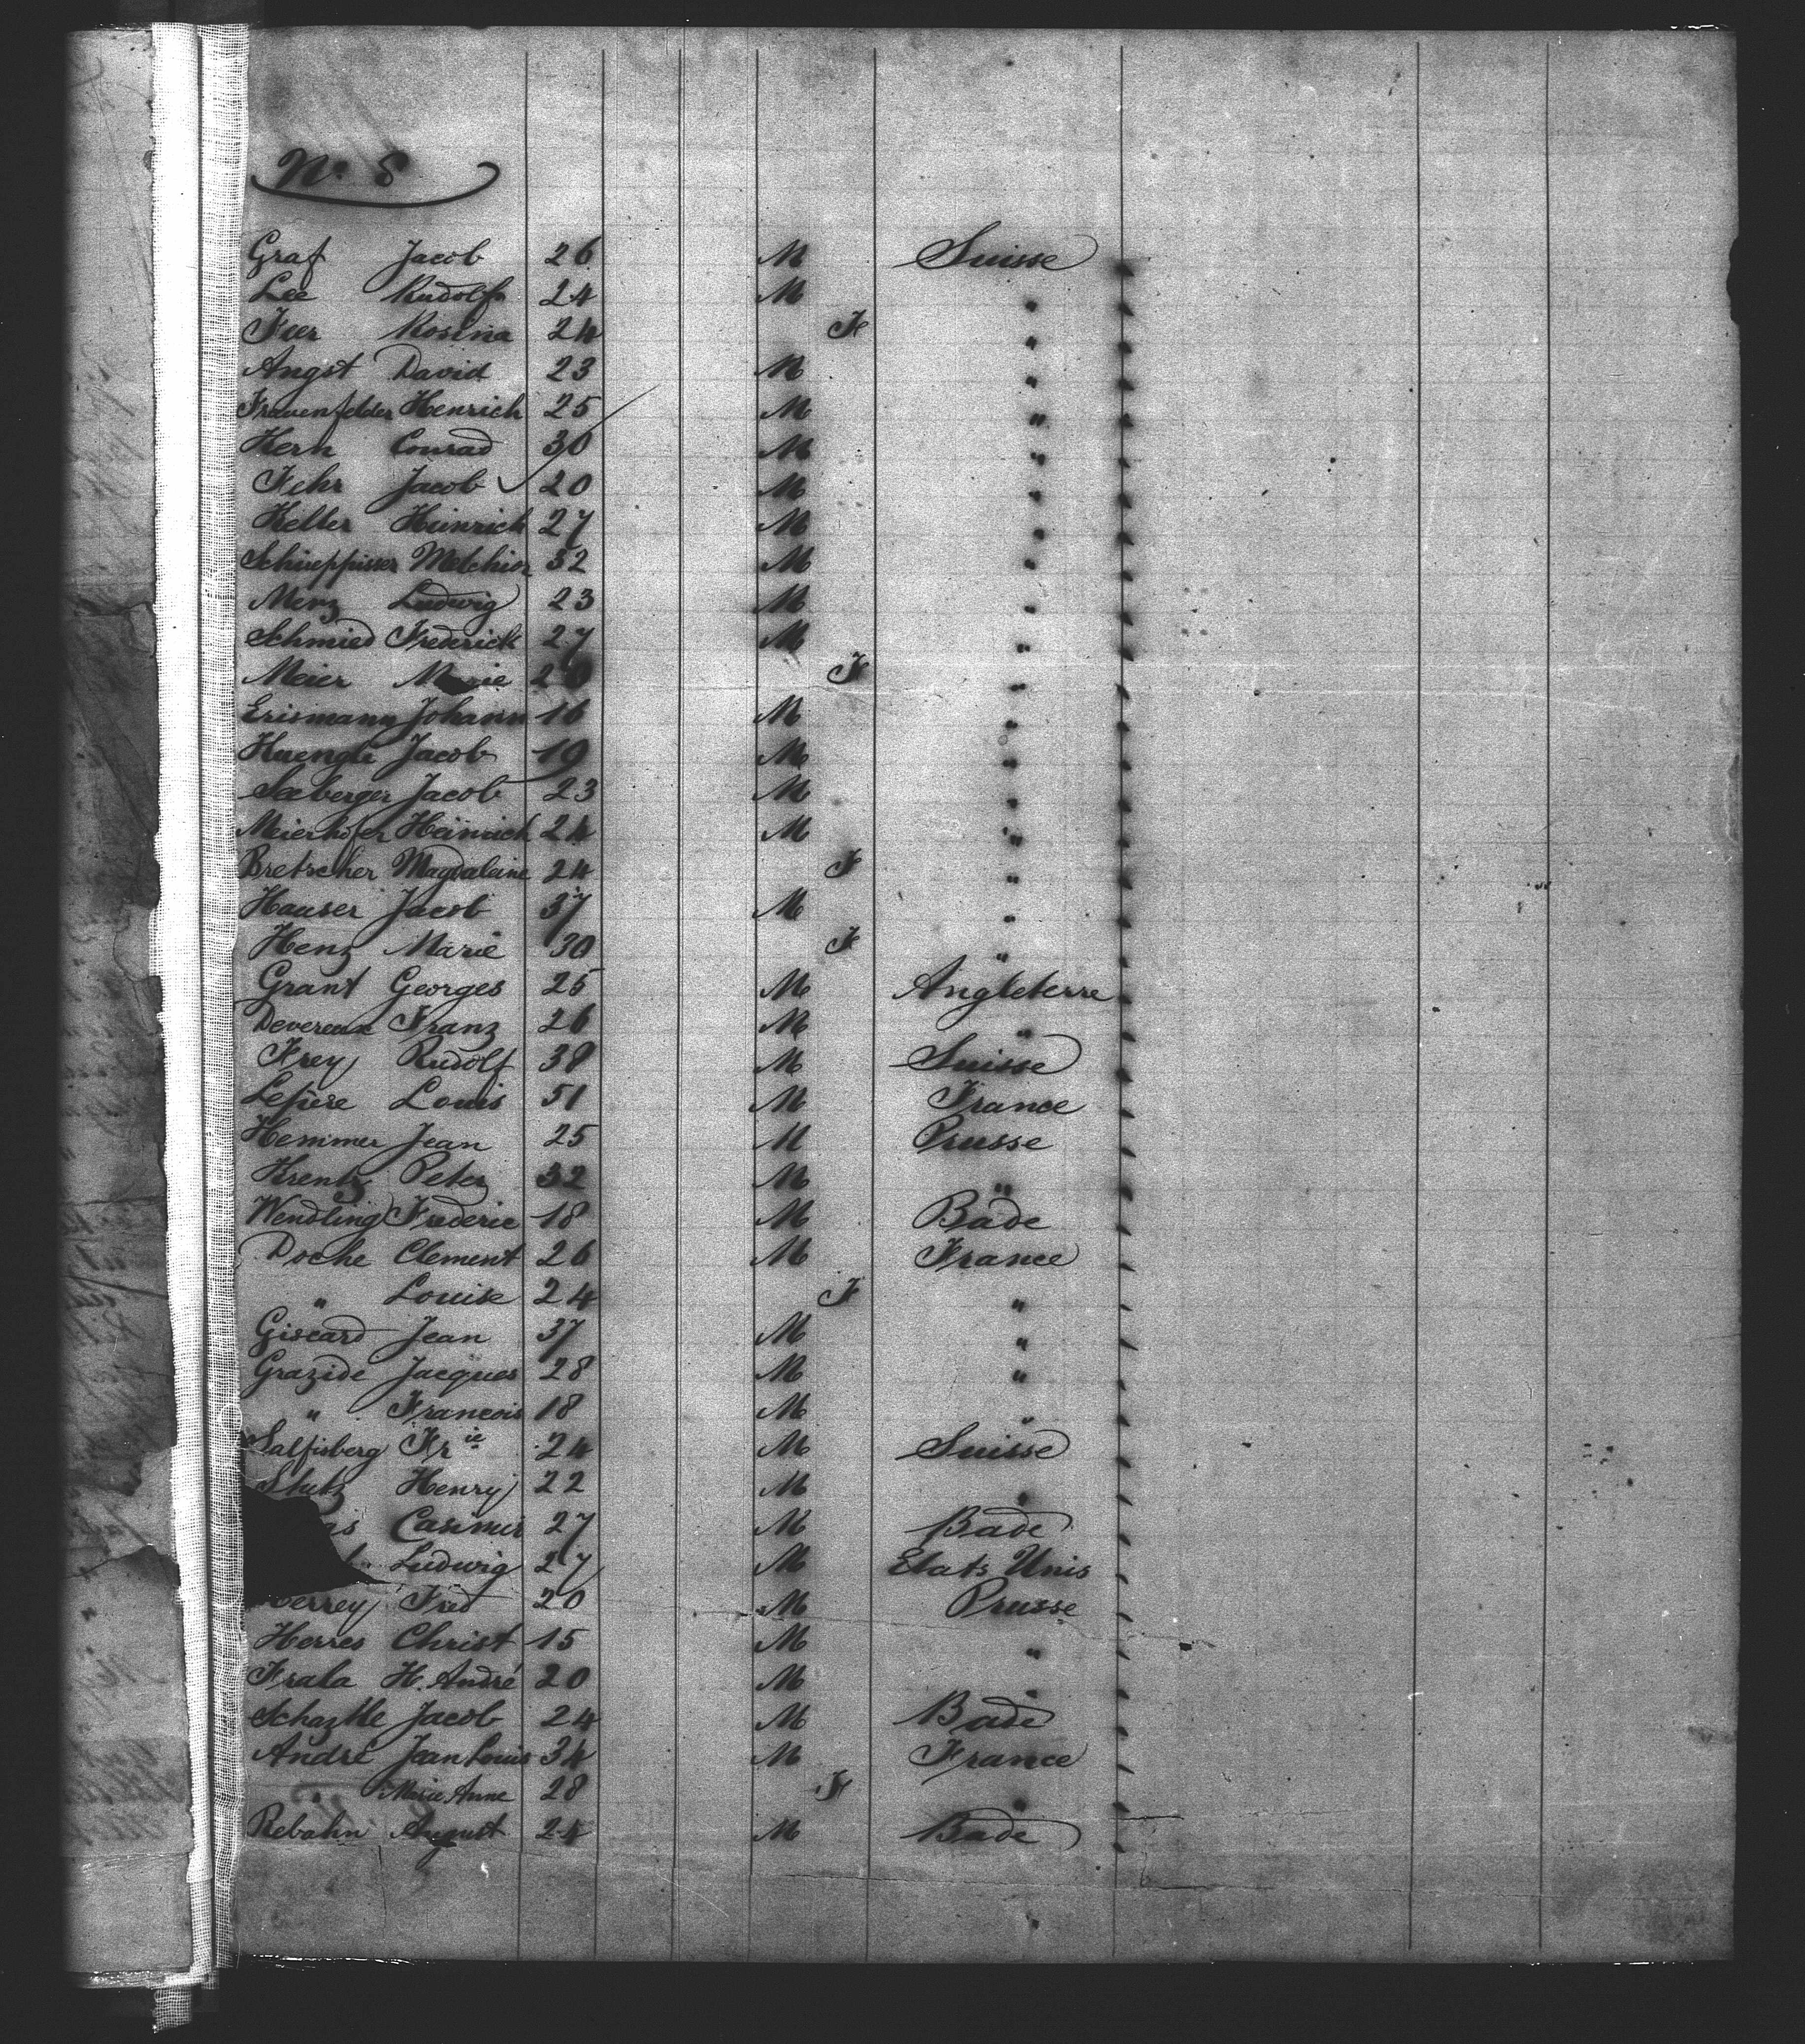 No. 8
Graf Jacob 26 M Suisse
Lee Rudolf 24 M "
Feer Rosina 24 F "
Angst David 23 M "
Frauenfelder Henrich 25 M "
Hern Conrad 30 M "
Fehr Jacob 20 M "
Keller Heinrich 27 M "
Schueppisser Melchior 32 M "
Merz Ludwig 23 M "
Schmied Frederick 27 M "
Meier Marie F "
Erismann Johann 16 M "
Huengli Jacob 19 M "
Seeberger Jacob 23 M "
Meierhofer Heinrich 24 M "
Bretscher Magdaleine 24 F "
Hauser Jacob 37 M "
Henz Marie 30 F "
Grant Georges 25 M Angleterre
Devereux Franz 26 M "
Frey Rudolf 38 M Suisse
Lepere Louis 51 M France
Hemmer Jean 25 M Prusse
Peter 32 M "
Wendling Frederic 18 M Bade
Doche Clement 26 M France
" Louise 24 F "
Giscard Jean 37 M "
Grazide Jacques 28 M "
" Francois 18 M "
Salfisberg Fr ie 24 M Suisse
Stutz Henry 22 M "
Casimir 27 M Bade
Ludwig 27 M Etats Unis
Fred 20 M Prusse
Herres Christ 15 M "
Frala H. André 20 M "
Schaztle Jacob 24 M Bade
André Jean Louis 34 M France
" Marie Anne 28 F "
Rebahn August 24 M Bade